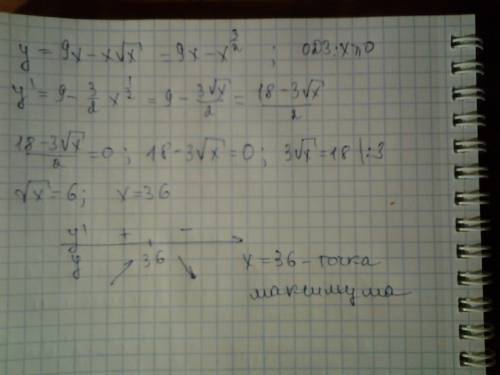 y = 9x - x√x = 9x - x^(3/2) ; ОДЗ: x ≥ 0
y' = 9 - 3/2 x^(1/2) = 9 - 3√x/2 = (18 - 3√x)/2
(18 - 3√x)/2 = 0 ; 18 - 3√x = 0 ; 3√x = 18 | :3
√x = 6 ; x = 36
y' + -
y 36 x = 36 - точка
максимума